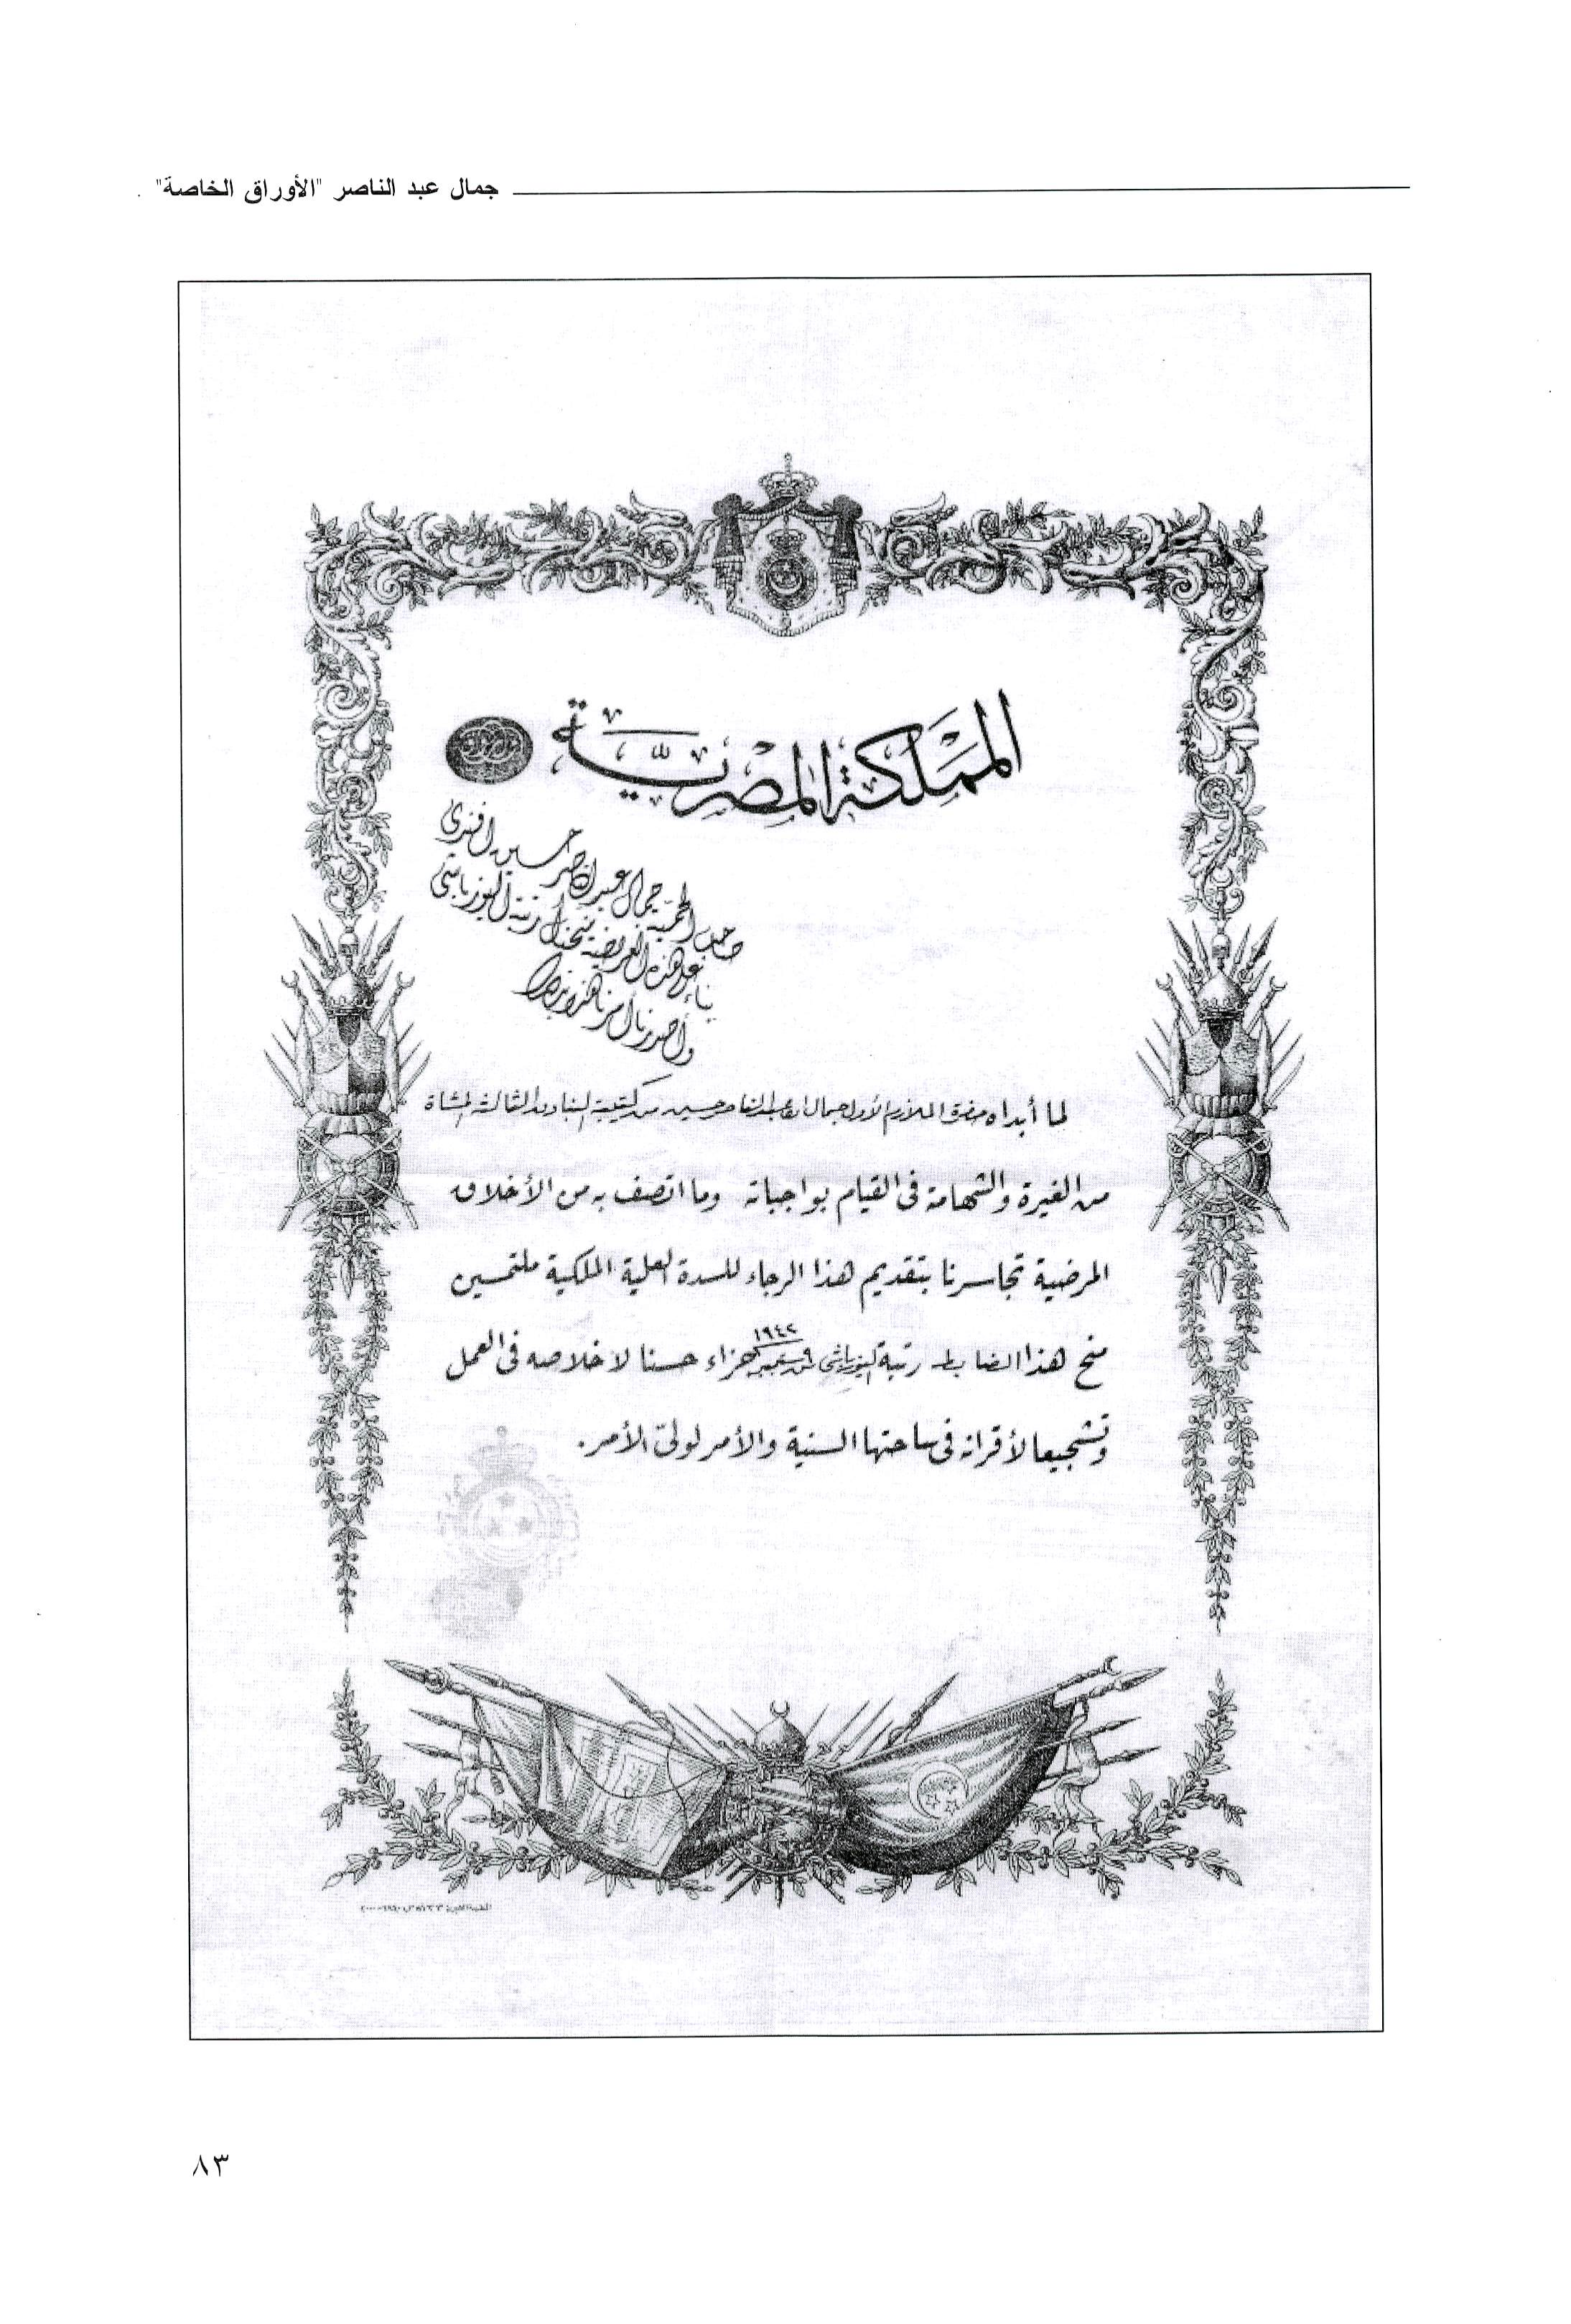 جمال عبد الناصر "الأوراق الخاصة"
المملكة المصرية
صاحب الحمية جمال عبد الناصر حسين افندى
بناء على هذه العريضة منحناك رتبة اليوزباشى
وأصدرنا أمرنا هذا
لما أبداه حضرة الملازم الأول جمال عبد الناصر حسين من كتيبة البنادق الثالثة المشاة
من الغيرة والشهامة فى القيام بواجباته وما اتصف به من الأخلاق
المرضية تجاسرنا بتقديم هذا الرجاء للسدة العلية الملكية ملتمسين
منح هذا الضابط رتبة اليوزباشى من ٩ سبتمبر ١٩٤٢ جزاء حسنا لاخلاصه فى العمل
وتشجيعا لأقرانه فى ساحتها السنية والأمر لولىّ الأمر.
٨٣